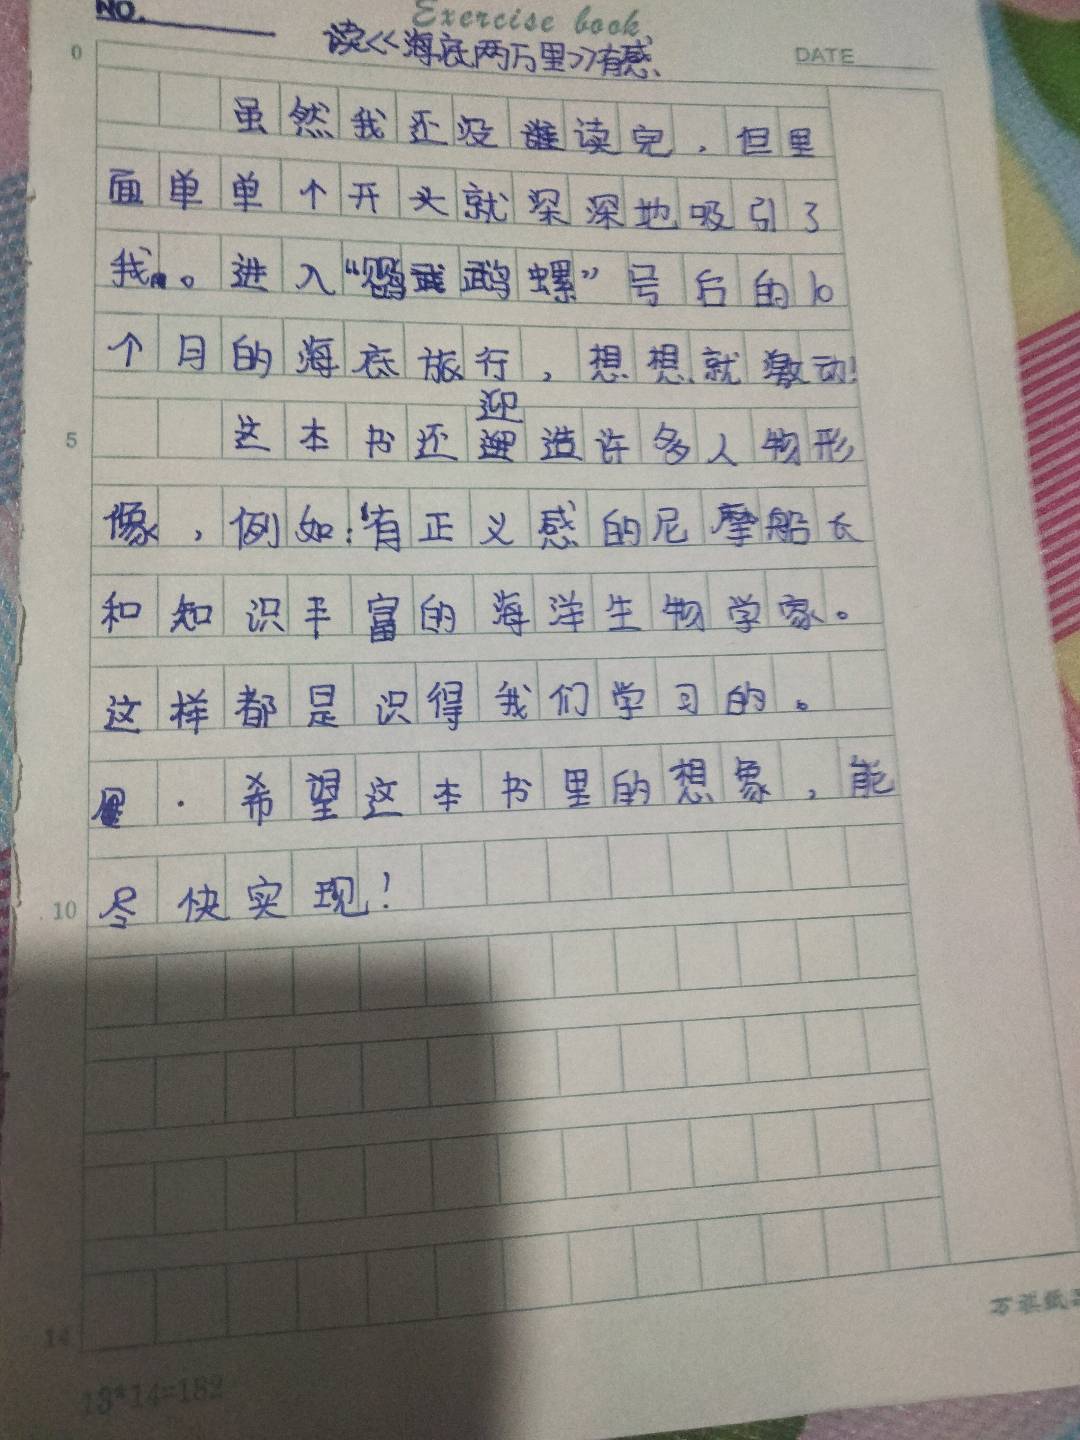 NO.
Exercise book
读<<海底两万里>>有感
DATE
0
虽然我还没谁读完，但里
面单单个开头就深深地吸引了
我。进入“鹦武鹉螺”号后的10
个月的海底旅行，想想就激动!
迎
5 这本书还造许多人物形
像，例如:有正义感的尼摩船长
和知识丰富的海洋生物学家。
这样都是识得我们学习的。
· 希望这本书里的想象，能
10 尽快实现!
14
13*14=182